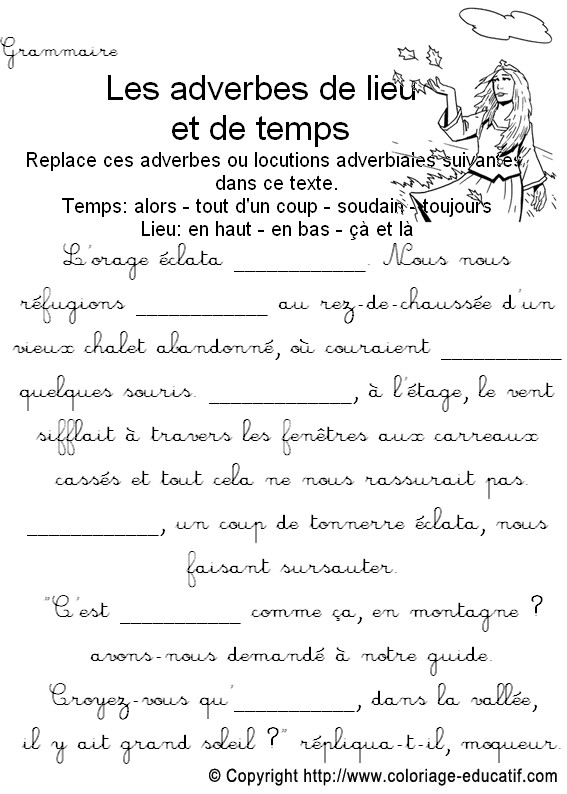 Grammaire
Les adverbes de lieu
et de temps
Replace ces adverbes ou locutions adverbiales suivantes
dans ce texte.
Temps: alors - tout d'un coup - soudain - toujours
Lieu: en haut - en bas - çà et là
L'orage éclata ____________. Nous nous
réfugions ____________ au rez-de-chaussée d'un
vieux chalet abandonné, où couraient ___________
quelques souris. _____________, à l'étage, le vent
sifflait à travers les fenêtres aux carreaux
cassés et tout cela ne nous rassurait pas.
____________, un coup de tonnerre éclata, nous
faisant sursauter.
"C'est ___________ comme ça, en montagne ?
avons-nous demandé à notre guide.
Croyez-vous qu'___________, dans la vallée,
il y ait grand soleil ?" répliqua-t-il, moqueur.
© Copyright http://www.coloriage-educatif.com